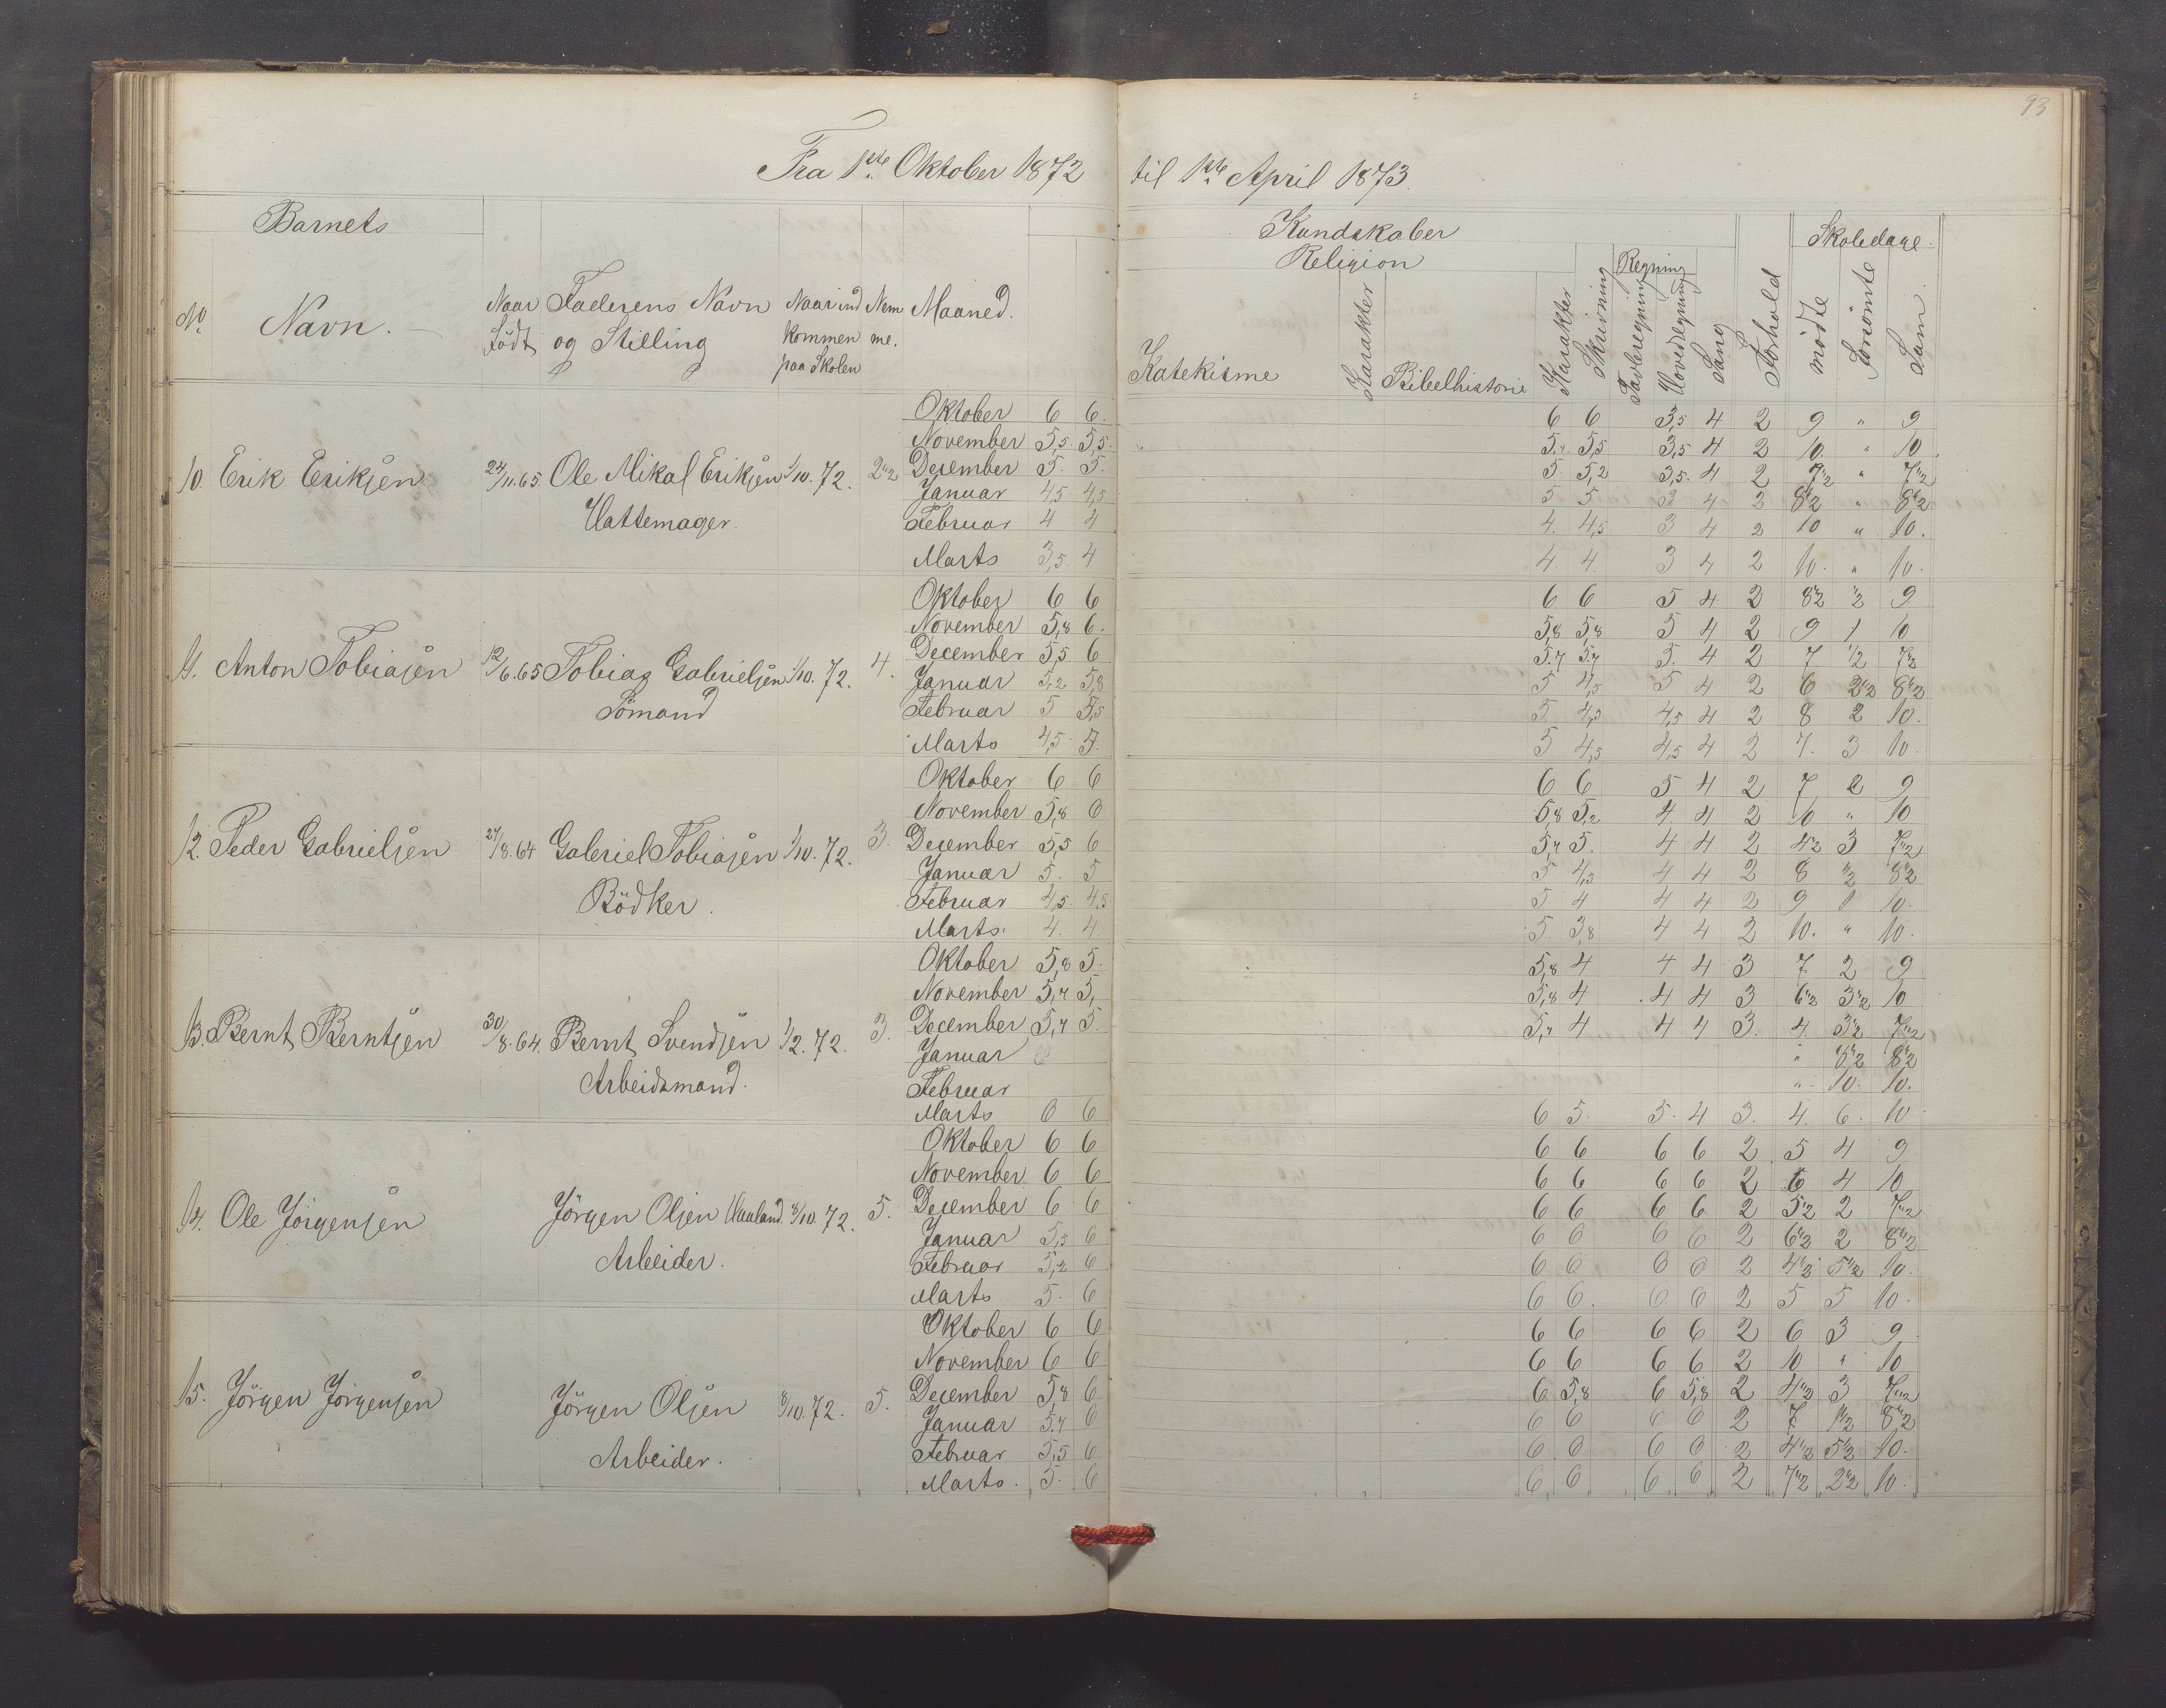 93
Fra 1ste Oktober 1872 til 1ste April 1873.
Barnets Kundskaber Skoledage
Religion Regning
No Navn. Naar Født Faderens Navn og Stilling Naar ind kommen paa Skolen Nem me. Maaned. Katekisme Karakter Bibelhistorie Karakter Skrivning Tavleregning Hovedregning Sang Forhold mödte Forsömte Sum
Oktober 6 6. 6 6 3,5 4 2 9 " 9
November 5,5 5,5 5,7 5,5 3,5 4 2 10. " 10
10. Erik Eriksen 24/11.65 Ole Mikal Eriksen 1/10.72. 2½ Desember 5. 5. 5 5,2 3,5. 4 2 7½ " 7½
Januar 4,5 4,5 5 5 3 4 2 8½ " 8½
Hattemager. Februar 4 4 4. 4,5 3 4 2 10 " 10.
Marts 3,5. 4 4. 4. 3 4 2 10. " 10.
Oktober 6 6 6 6 5 4 2 8½ ½ 9
November 5,8 6. 5,8 5,8 5 4 2 9 1 10
11. Anton Tobiasen 12/6.65 Tobias Gabrielsen 1/10.72. 4. December 5,5 6 5.7 5,7 5. 4 2 7 ½ 7½
Januar 5,2 5,8 5 4,5 5 4 2 6 2½ 8½
Sömand Februar 5 5,5 5 4,5 4,5 4 2 8 2 10.
Marts 4,5. 5. 5 4,5 4,5 4 2 7. 3 10.
Oktober 6 6 6 6 5 4 2 7 2 9
November 5,8 6 5,8 5,2 4. 4 2 10 " 10
12. Peder Gabrielsen 27/8.64 Gabriel Tobiasen 1/10.72. 3. December 5,5 6 5,7 5. 4 4 2 4½ 3 7½
Januar 5. 5 5 4,5 4 4 2 8 ½ 8½
Bödker. Februar 4,5. 4,5 5 4 4 4 2 9 1 10.
Marts. 4. 4 5 3,8 4 4 2 10. " 10.
Oktober 5,8 5. 5,8 4 4 4 3 7 2 9
November 5,7 5, 5,8 4 4 4 3 6½ 3½ 10
13. Bernt Berntsen 30/8.64. Bernt Svendsen 1/2.72. 3. December 5,7 5. 5,7 4 4 4 3. 4. 3½ 7½
Januar " 8½ 8½
Arbeidsmand. Februar " 10. 10.
Marts 6 6 6 5. 5. 4 3. 4. 6. 10
Oktober 6 6 6 6 6 6 2 5 4 9
November 6 6 6 6 6 6 2 6 4 10
14. Ole Jörgensen Jörgen Olsen Haaland. 8/10.72. 5. December 6 6 6 6 6 6 2 5½ 2 7½
Januar 5,5 6 6 6 6 6 2 6½ 2 8½
Arbeider. Februar 5,2 6 6 6 6 6 2 4½ 5½ 10.
Marts 5. 6 6 6. 6. 6 2 5 5 10.
Oktober 6 6 6 6 6 6 2 6 3 9
November 6 6 6 6 6 6 2 10 " 10
15. Jörgen Jörgensen Jörgen Olsen 8/10.72. 5. December 5,8 6 6 5,8 6 5,8 2 4½ 3 7½
Januar 5,7 6 6 6 6 6 2 7 1½ 8½
Arbeider. Februar 5,5 6 6 6 6 6 2 4½ 5½ 10.
Marts. 5. 6 6 6 6 6 2 7½ 2½ 10.